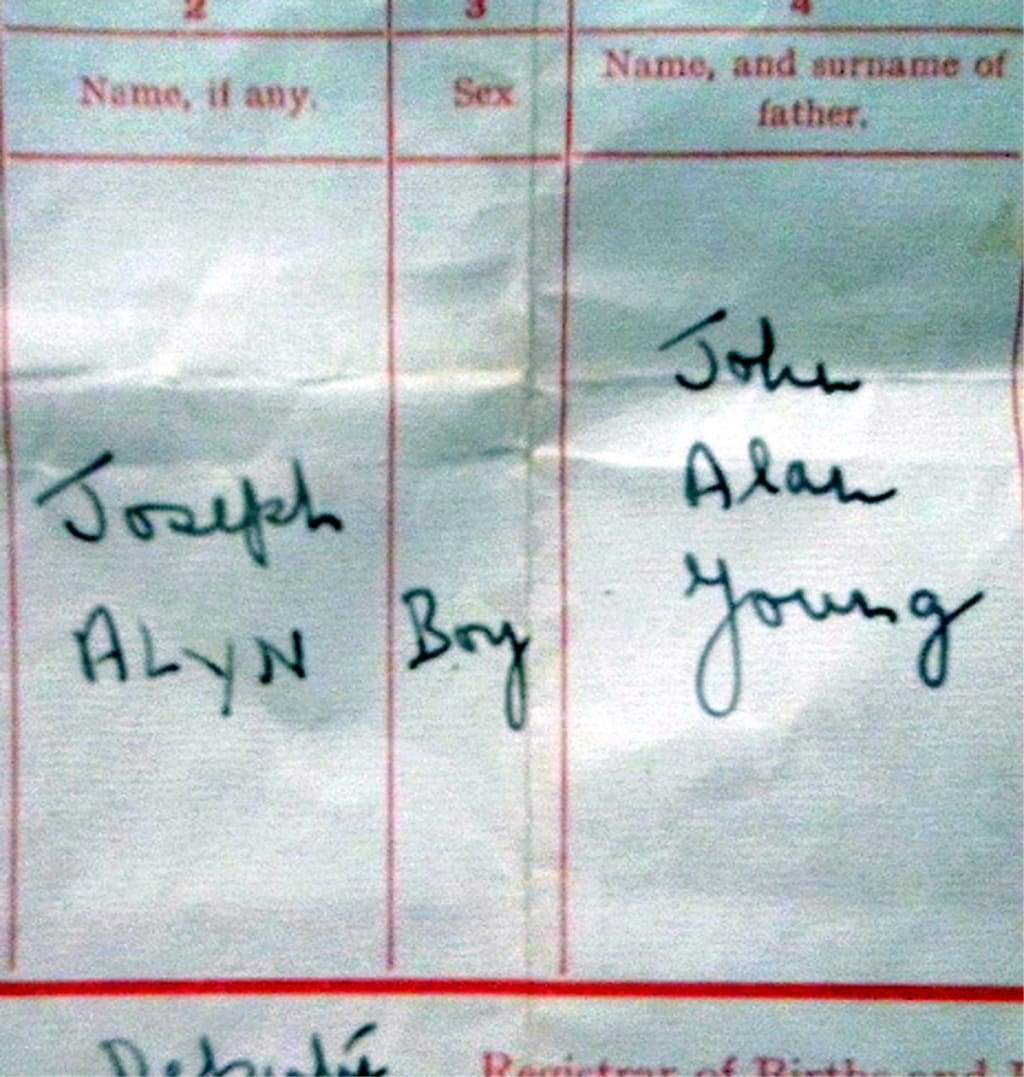 2 3 4
Name, if any. Sex Name, and surname of
father.
John
Joseph Alan
ALYN Boy Young
Registrar of Births and